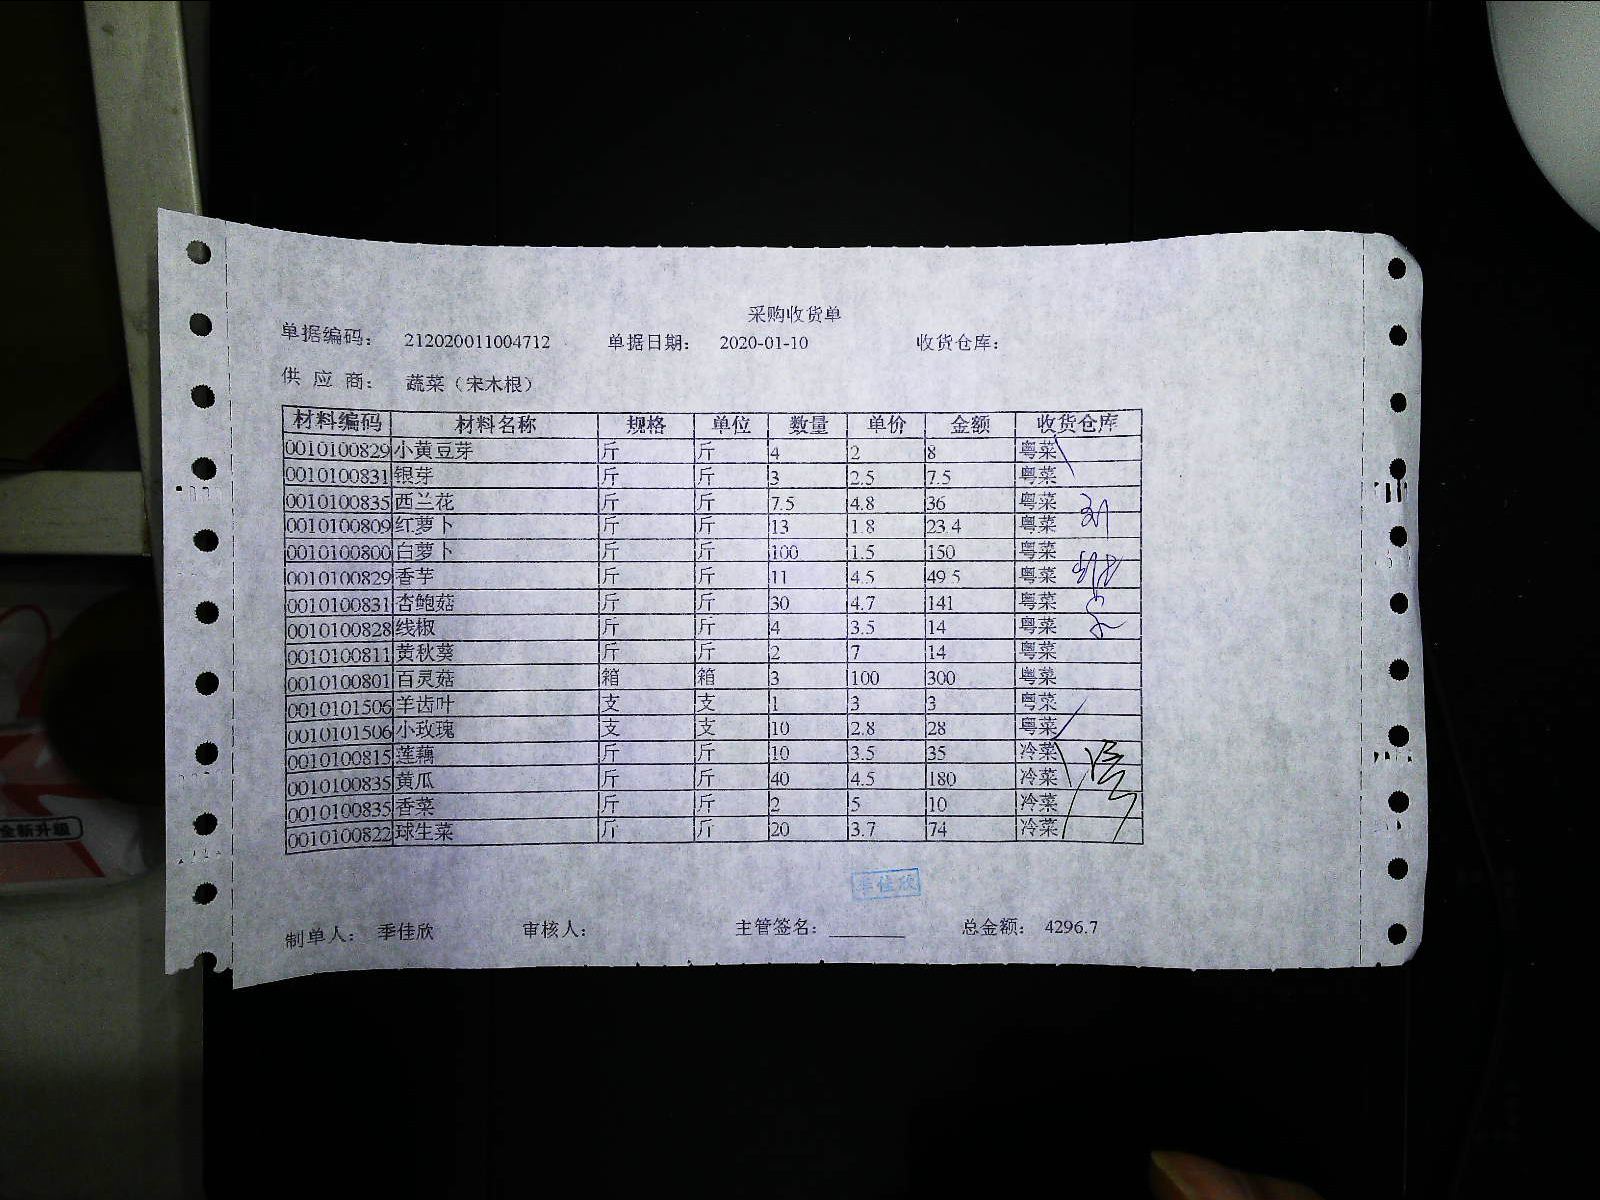 采购收货单
单据编码： 212020011004712 单据日期： 2020-01-10 收货仓库：
供 应 商： 蔬菜（宋木根）
材料编码 材料名称 规格 单位 数量 单价 金额 收货仓库
0010100829 小黄豆芽 斤 斤 4 2 8 粤菜
0010100831 银芽 斤 斤 3 2.5 7.5 粤菜
0010100835 西兰花 斤 斤 7.5 4.8 36 粤菜
0010100809 红萝卜 斤 斤 13 1.8 23.4 粤菜
0010100800 白萝卜 斤 斤 100 1.5 150 粤菜
0010100829 香芋 斤 斤 11 4.5 49.5 粤菜
0010100831 杏鲍菇 斤 斤 30 4.7 141 粤菜
0010100828 线椒 斤 斤 4 3.5 14 粤菜
0010100811 黄秋葵 斤 斤 2 7 14 粤菜
0010100801 百灵菇 箱 箱 3 100 300 粤菜
0010101506 羊齿叶 支 支 1 3 3 粤菜
0010101506 小玫瑰 支 支 10 2.8 28 粤菜
0010100815 莲藕 斤 斤 10 3.5 35 冷菜
0010100835 黄瓜 斤 斤 40 4.5 180 冷菜
0010100835 香菜 斤 斤 2 5 10 冷菜
0010100822 球生菜 斤 斤 20 3.7 74 冷菜
季佳欣
制单人： 季佳欣 审核人： 主管签名： 总金额： 4296.7
全新升级